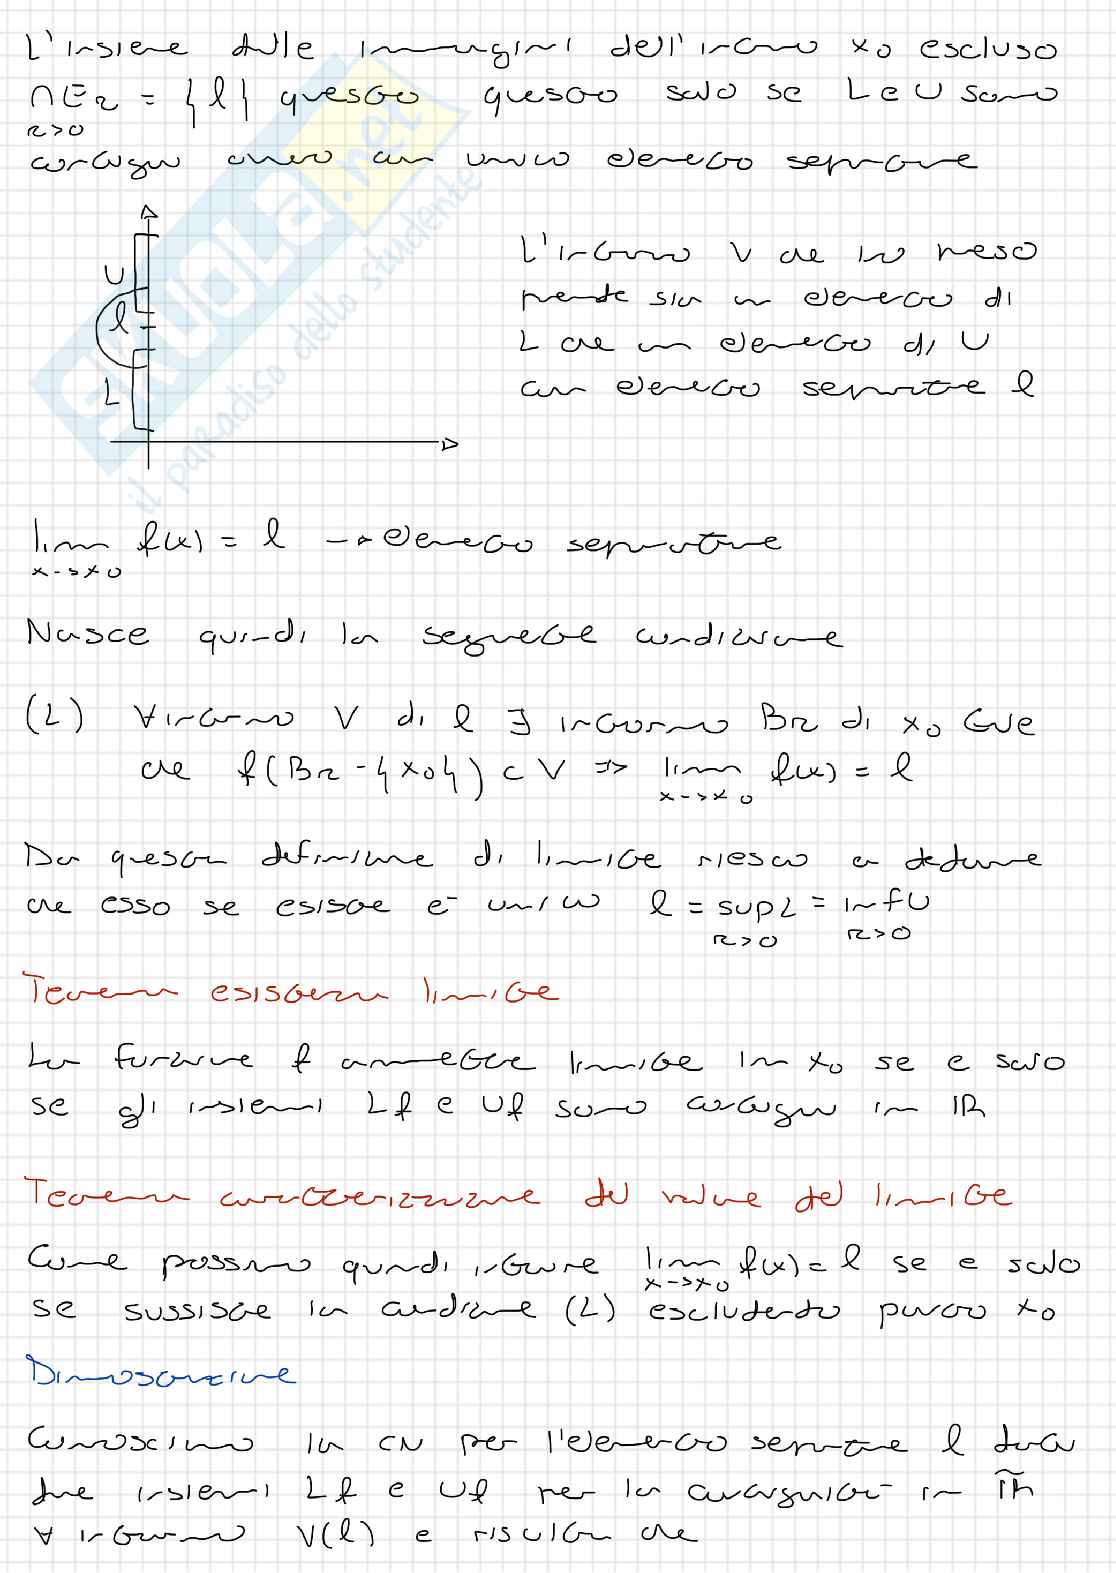 L'insieme delle immagini dell'intorno x₀ escluso
∩ E_r = {l} questo questo solo se L e U sono
r>0
contigui ovvero con unico elemento separatore
L'intorno V che ho messo
prende sia un elemento di
L che un elemento di U
con elemento separatore l
U
l
L
lim f(x) = l → elemento separatore
x->x₀
Nasce quindi la seguente condizione
(L) ∀ intorno V di l ∃ intorno Br di x₀ tale
che f(Br - {x₀}) ⊂ V => lim f(x) = l
x->x₀
Da questa definizione di limite riesco a dedurre
che esso se esiste è unico l = sup L = inf U
r>0 r>0
Teorema esistenza limite
La funzione f ammette limite in x₀ se e solo
se gli insiemi Lf e Uf sono contigui in ℝ
Teorema caratterizzazione del valore del limite
Come possiamo quindi trovare lim f(x) = l se e solo
x->x₀
se sussiste la condizione (L) escludendo punto x₀
Dimostrazione
Conosciamo la CN per l'elemento separatore l
due insiemi Lf e Uf per la contiguità in ℝ̃
∀ intorno V(l) e risulta che
SKUOLA.net
il paradiso dello studente